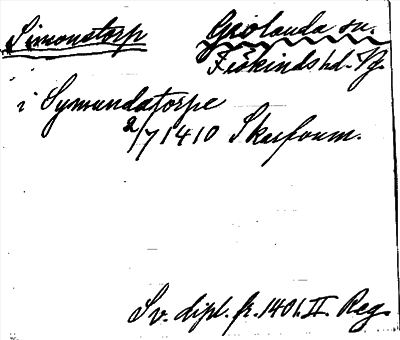 Simonstorp Grolanda sn.
Frökinds hd. Vg.
i Symundatorpe
2/7 1410 Skarfoum.
Sv. dipl. fr. 1401. II. Reg.